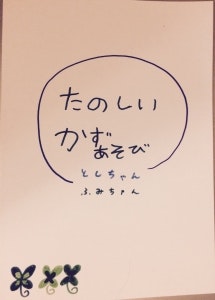 たのしい
かず
あそび
としちゃん
ふみちゃん